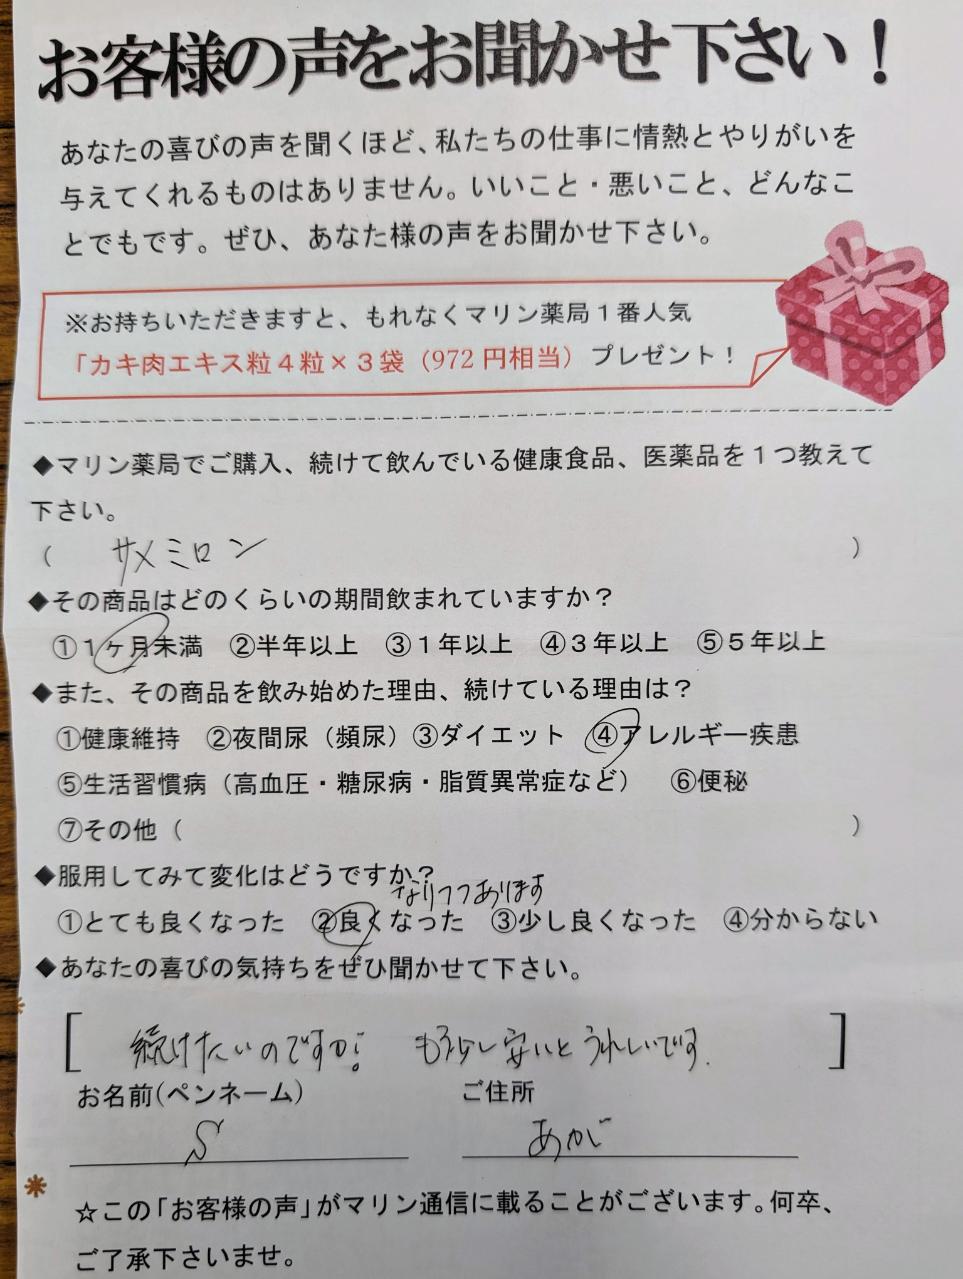 お客様の声をお聞かせ下さい！
あなたの喜びの声を聞くほど、私たちの仕事に情熱とやりがいを
与えてくれるものはありません。いいこと・悪いこと、どんなこ
とでもです。ぜひ、あなた様の声をお聞かせ下さい。
※お持ちいただきますと、もれなくマリン薬局１番人気
「カキ肉エキス粒４粒×３袋（972円相当）プレゼント！
◆マリン薬局でご購入、続けて飲んでいる健康食品、医薬品を１つ教えて
下さい。
（ サメミロン ）
◆その商品はどのくらいの期間飲まれていますか？
①１ヶ月未満 ②半年以上 ③１年以上 ④３年以上 ⑤５年以上
◆また、その商品を飲み始めた理由、続けている理由は？
①健康維持 ②夜間尿（頻尿）③ダイエット ④アレルギー疾患
⑤生活習慣病（高血圧・糖尿病・脂質異常症など） ⑥便秘
⑦その他（ ）
◆服用してみて変化はどうですか？
なりつつあります
①とても良くなった ②良くなった ③少し良くなった ④分からない
◆あなたの喜びの気持ちをぜひ聞かせて下さい。
[ 続けたいのですが! もう少し安いとうれしいです. ]
お名前(ペンネーム) ご住所
S あがい
☆この「お客様の声」がマリン通信に載ることがございます。何卒、
ご了承下さいませ。